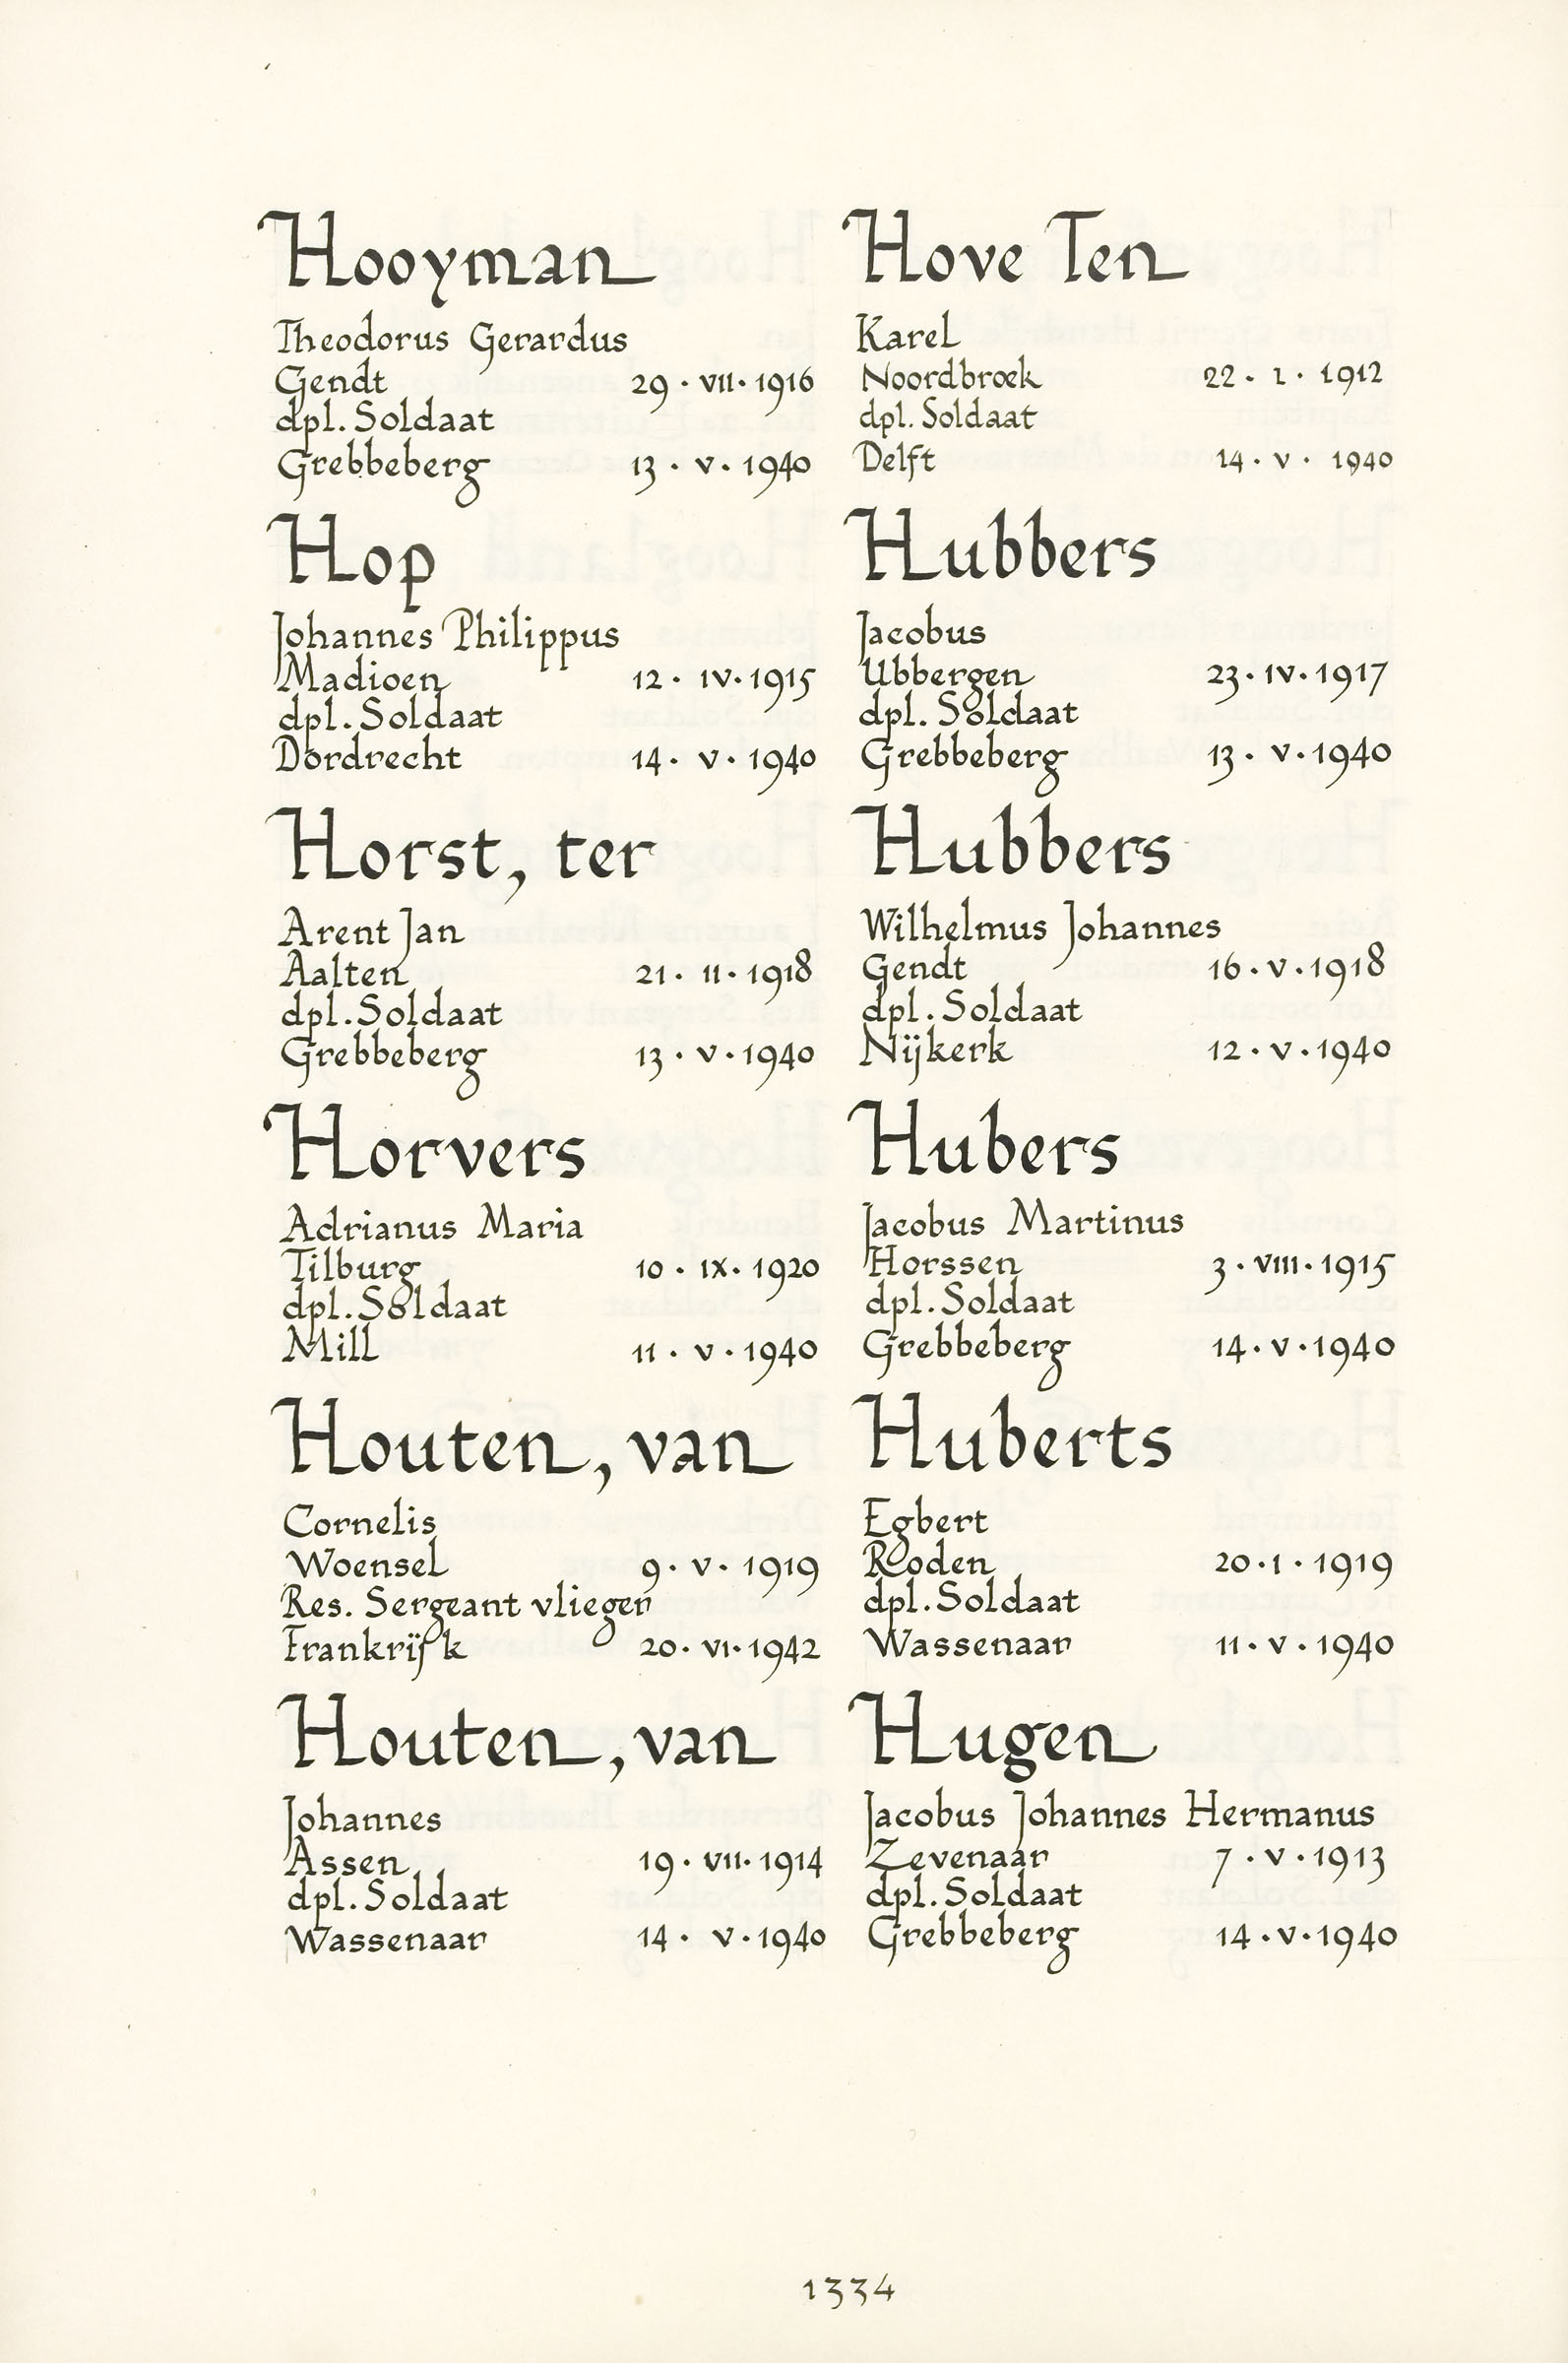 Hooyman
Theodorus Gerardus
Gendt 29 · VII · 1916
dpl. Soldaat
Grebbeberg 13 · V · 1940
Hop
Johannes Philippus
Madioen 12 · IV · 1915
dpl. Soldaat
Dordrecht 14 · V · 1940
Horst, ter
Arent Jan
Aalten 21 · II · 1918
dpl. Soldaat
Grebbeberg 13 · V · 1940
Horvers
Adrianus Maria
Tilburg 10 · IX · 1920
dpl. Soldaat
Mill 11 · V · 1940
Houten, van
Cornelis
Woensel 9 · V · 1919
Res. Sergeant vlieger
Frankrijk 20 · VI · 1942
Houten, van
Johannes
Assen 19 · VII · 1914
dpl. Soldaat
Wassenaar 14 · V · 1940
Hove Ten
Karel
Noordbroek 22 · 1 · 1912
dpl. Soldaat
Delft 14 · V · 1940
Hubbers
Jacobus
Ubbergen 23 · IV · 1917
dpl. Soldaat
Grebbeberg 13 · V · 1940
Hubbers
Wilhelmus Johannes
Gendt 16 · V · 1918
dpl. Soldaat
Nijkerk 12 · V · 1940
Hubers
Jacobus Martinus
Horssen 3 · VIII · 1915
dpl. Soldaat
Grebbeberg 14 · V · 1940
Huberts
Egbert
Roden 20 · I · 1919
dpl. Soldaat
Wassenaar 11 · V · 1940
Hugen
Jacobus Johannes Hermanus
Zevenaar 7 · V · 1913
dpl. Soldaat
Grebbeberg 14 · V · 1940
1334